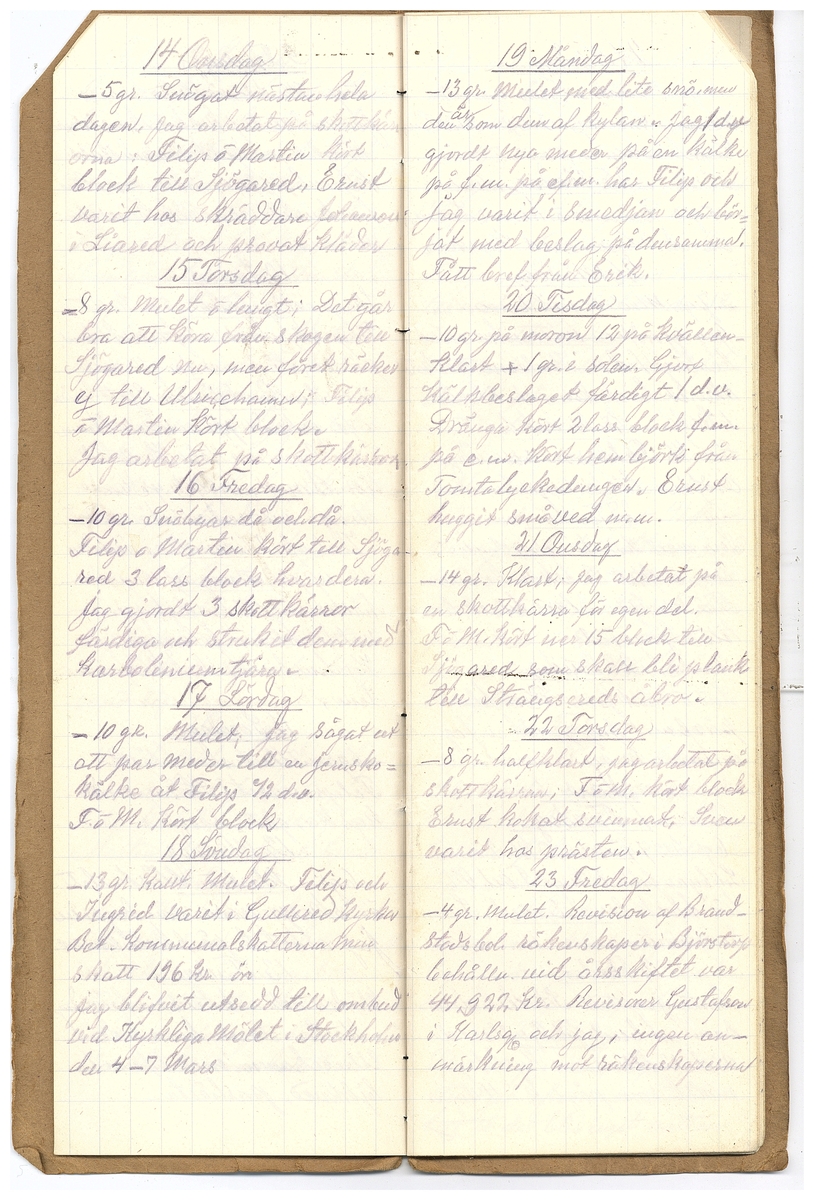 14 Onsdag
-5 gr. Snögat nästan hela
dagen, jag arbetat på skottkär
orna: Filip o Martin kört
block till Sjögared, Ernst
varit hos skräddare Johanson
i Liared och provat kläder
15 Torsdag
-8 gr. Mulet o lungt; Det går
bra att köra från skogen till
Sjögared nu, men föret räcker
ej till Ulricehamn; Filip
o Martin kört block.
Jag arbetat på skottkärror
16 Fredag
-10 gr. Snöbyar då och då.
Filip o Martin kört till Sjöga-
red 3 lass block hvardera.
Jag gjordt 3 skottkärror
färdiga och strukit dem med
karboleniumtjära.
17 Lördag
-10 gr. Mulet, jag sågat ut
ott par meder till en jernsko=
kälke åt Filip 1/2 d.v.
F. o M. kört block
18 Söndag
-13 gr. kallt. Mulet. Filip och
Ingrid varit i Gullered kyrka
Bet. Kommunalskatterna min
skatt 196 kr öre
Jag blifvit utsedd till ombud
vid Kyrkliga Mötet i Stockholm
den 4-7 Mars
19 Måndag
-13 gr. Mulet med lite snö. men
den är som dum af kylan. Jag 1 d.v
gjordt nya meder på en kälke
på f.m. på e.m. har Filip och
jag varit i smedjan och bör=
jat med beslag på densamma.
Fått bref från Erik.
20 Tisdag
-10 gr. på moron 12 på kvällen-
Klart + 1 gr. i solen. Gjort
kälkbeslaget färdigt 1 d.v.
Dränga kört 2 lass block f.m.
på e.m. kört hem björk från
Tomtalyckedungen. Ernst
huggit småved m.m.
21 Onsdag
-14 gr. Klart; jag arbetat på
en skottkärra för egen del.
F o M. kört ner 15 block till
Sjögared som skall bli plank
till Strängsereds åbro.
22 Torsdag
-8 gr. halfklart, jag arbetat på
skottkärran; F o M. kört block
Ernst kokat svinmat, Sven
varit hos prästen.
23 Fredag
-4 gr. Mulet. Revision af Brand-
stodsbol. räkenskaper i Björstorp
behålln. vid årsskiftet var
44,922 kr. Revisorer Gustafson
i Karlsg. och jag, ingen an-
märkning mot räkenskaperna